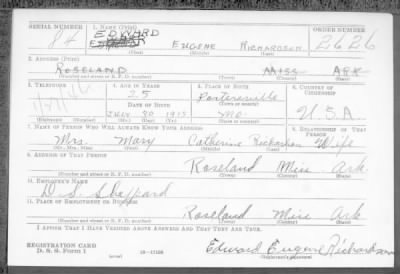 SERIAL NUMBER
1. NAME (Print)
ORDER NUMBER
84
EDWARD
EUGENE RICHARDSON
2626
(First) (Middle) (Last)
2. ADDRESS (Print)
ROSELAND MISS ARK
(Number and street or R. F. D. number) (Town) (County) (State)
3. TELEPHONE
4. AGE IN YEARS
5. PLACE OF BIRTH
6. COUNTRY OF CITIZENSHIP
25
Portersville
DATE OF BIRTH
JULY 30 1915
Mo.
U.S.A
(Exchange) (Number)
(Mo.) (Day) (Yr.)
(State or country)
7. NAME OF PERSON WHO WILL ALWAYS KNOW YOUR ADDRESS
8. RELATIONSHIP OF THAT PERSON
Mrs. Mary Catherine Richardson Wife
(Mr., Mrs., Miss) (First) (Middle) (Last)
9. ADDRESS OF THAT PERSON
Roseland Miss Ark.
(Number and street or R. F. D. number) (Town) (County) (State)
10. EMPLOYER'S NAME
D. S. Sheppard
11. PLACE OF EMPLOYMENT OR BUSINESS
Roseland Miss Ark
(Number and street or R. F. D. number) (Town) (County) (State)
I AFFIRM THAT I HAVE VERIFIED ABOVE ANSWERS AND THAT THEY ARE TRUE.
REGISTRATION CARD
D. S. S. Form 1
(over)
16-17105
Edward Eugene Richardson
(Registrant's signature)